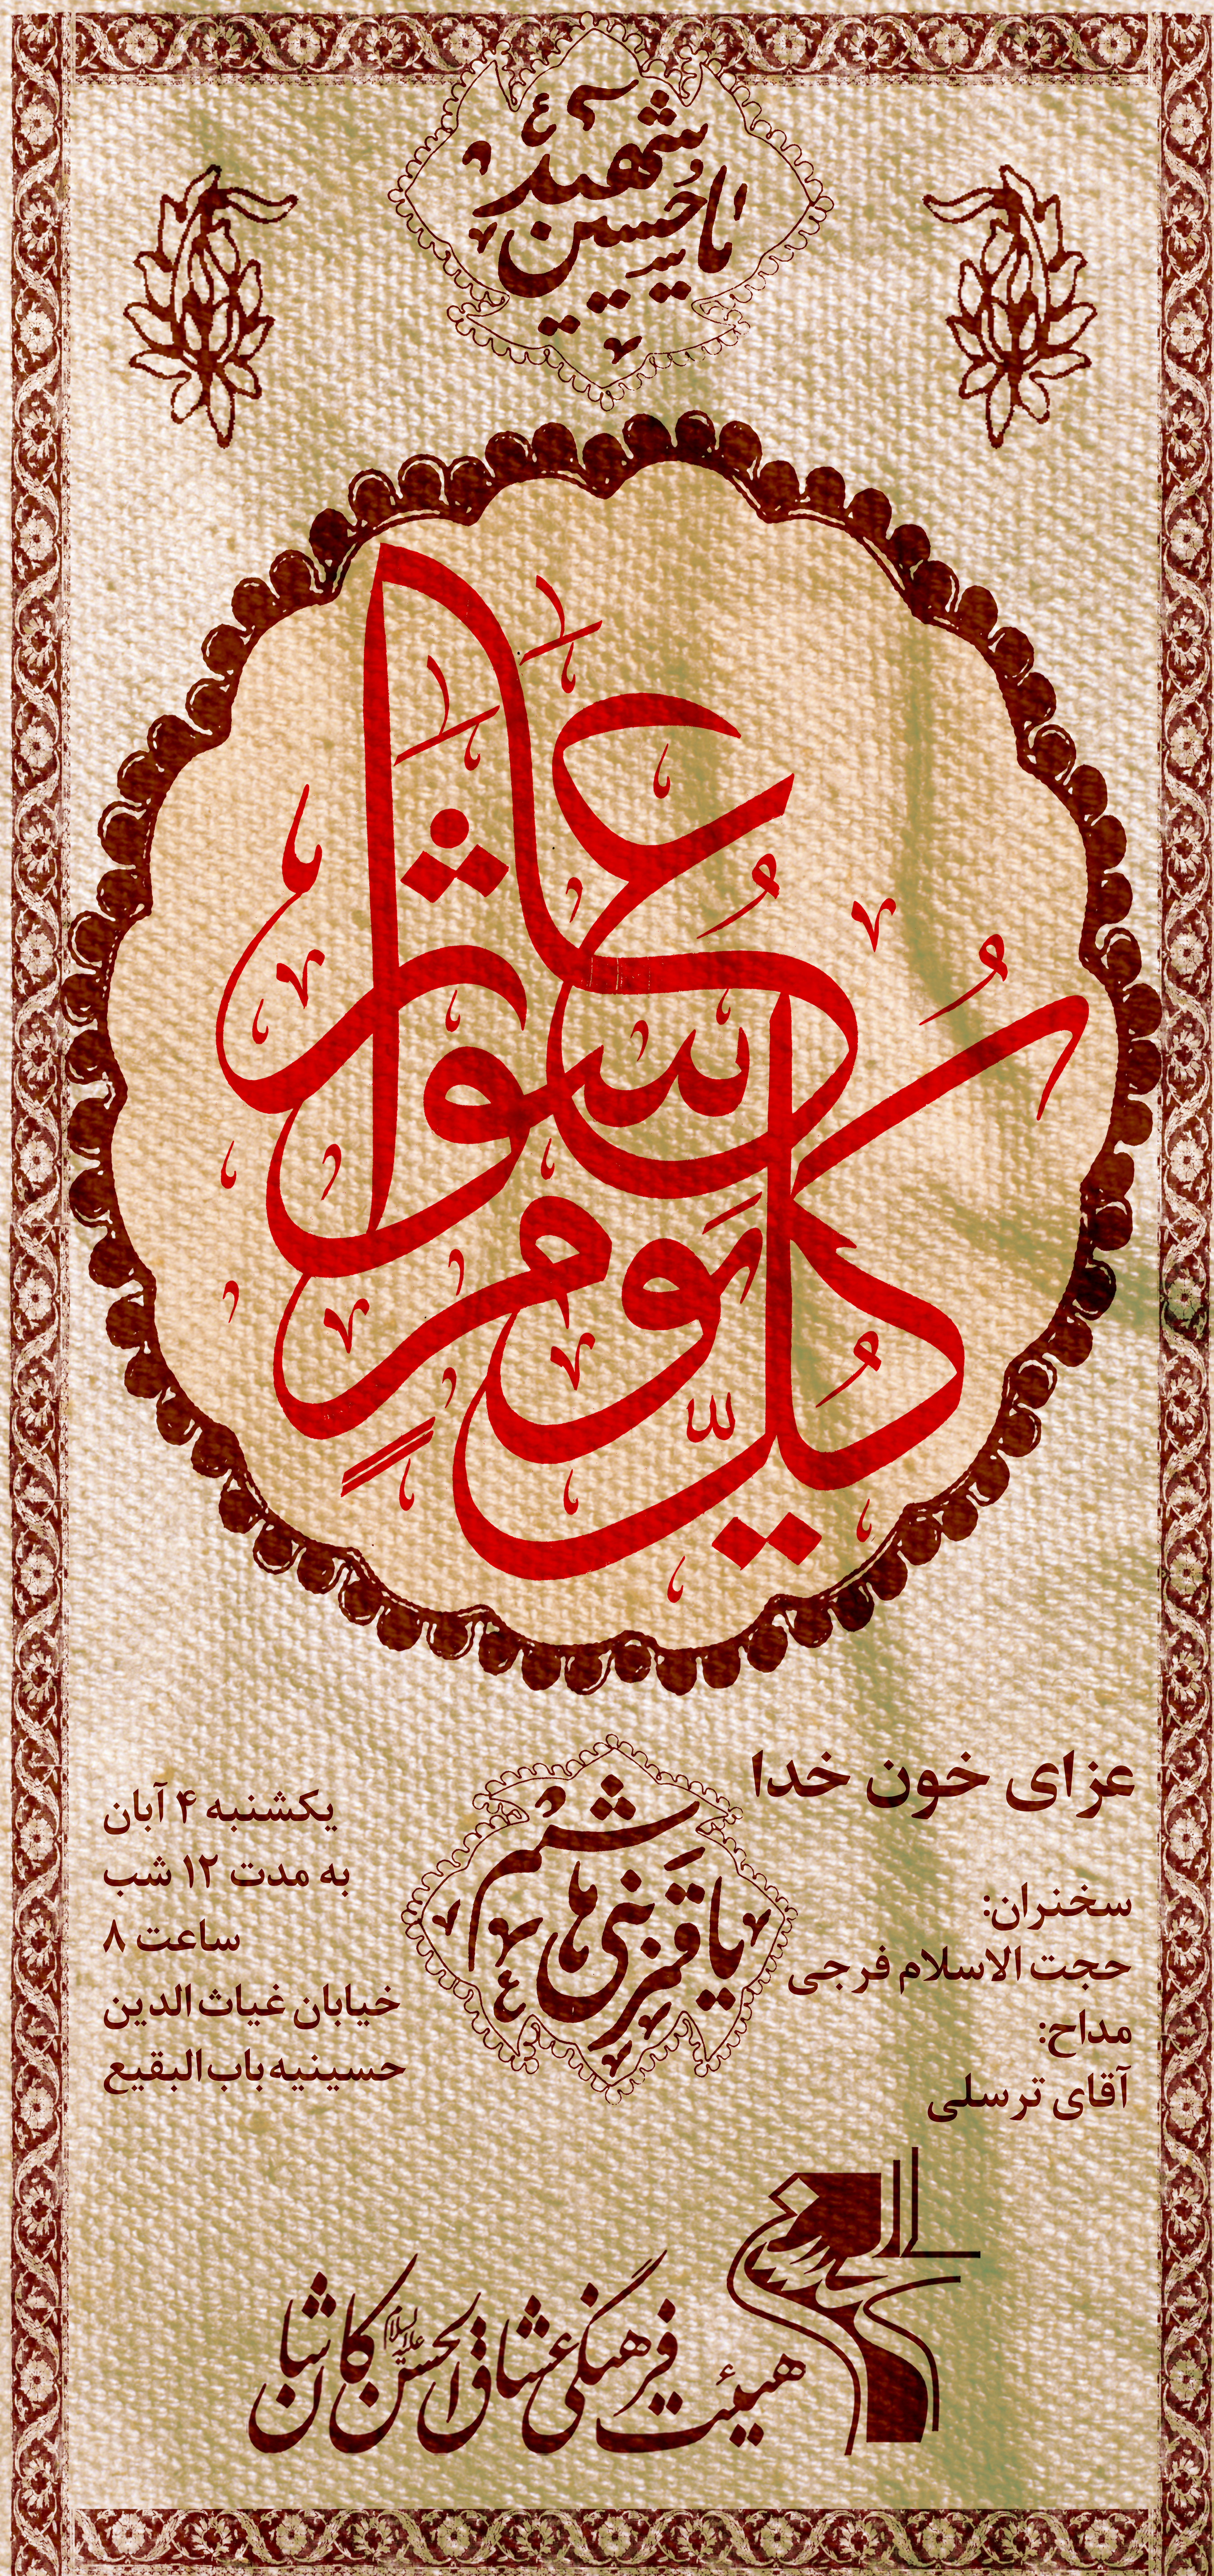 یا حسین شهید ع
کل یوم عاشورا
عزای خون خدا
سخنران:
حجت الاسلام فرجی
مداح:
آقای ترسلی
یا قمر بنی هاشم ع
یکشنبه ۴ آبان
به مدت ۱۲ شب
ساعت ۸
خیابان غیاث الدین
حسینیه باب البقیع
هیئت فرهنگی عشاق الحسین علیه السلام کاشان